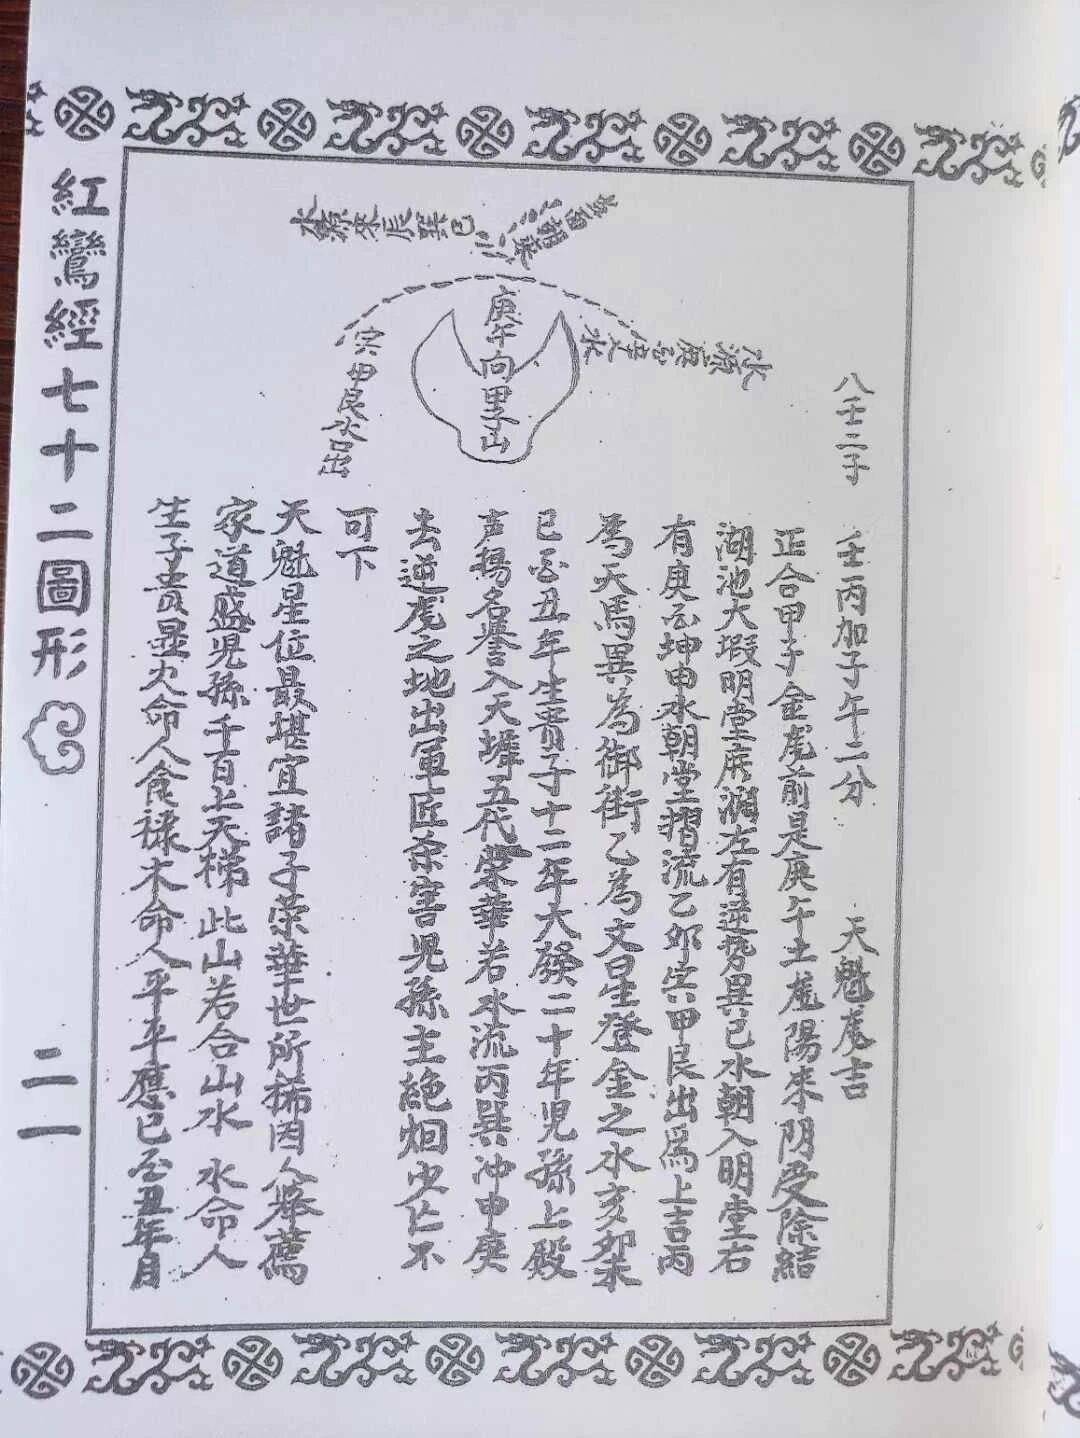 紅鸞經七十二圖形
二一
八壬二子　壬丙加子午二分　天魁虎吉
正合甲子金虎前是庚午土虎陽來阴受除結
湖池大瑕明堂廣濶左有逆势巽巳水朝入明堂右
有庚酉坤申水朝堂摺流乙卯宾甲艮出爲上吉丙
為天馬巽為御街乙為文星登金之水亥卯未
巳酉丑年生貴子十二年大發二十年児孫上殿
声揚名譽入天墀五代榮華若水流丙巽冲申庚
去逆虎之地出軍匠杀害児孫主絶烟火亡不
可下
天魁星位最堪宜諸子荣華世所稀因人举薦
家道盛児孫千百上天梯此山若合山水　水命人
生子贵显火命人食禄木命人平平應巳酉丑年月
庚午向甲子山
水源來辰巽巳
水源庚酉
宾甲艮水口出